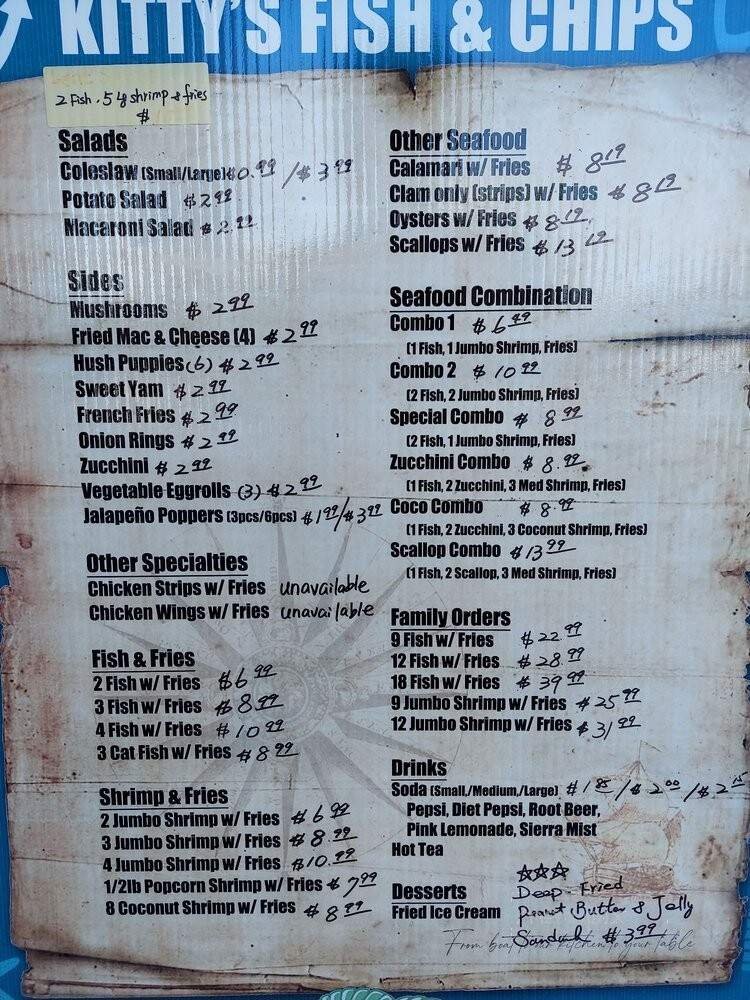 KITTY'S FISH & CHIPS
2 Fish, 5 lg shrimp & fries
$
Salads
Coleslaw (Small/Large) $0.99 / $3.99
Potato Salad $2.99
Macaroni Salad $2.99
Sides
Mushrooms $2.99
Fried Mac & Cheese (4) $2.99
Hush Puppies (6) $2.99
Sweet Yam $2.99
French Fries $2.99
Onion Rings $2.99
Zucchini $2.99
Vegetable Eggrolls (3) $2.99
Jalapeño Poppers (3pcs/6pcs) $1.99/$3.99
Other Specialties
Chicken Strips w/ Fries unavailable
Chicken Wings w/ Fries unavailable
Fish & Fries
2 Fish w/ Fries $6.99
3 Fish w/ Fries $8.99
4 Fish w/ Fries $10.99
3 Cat Fish w/ Fries $8.99
Shrimp & Fries
2 Jumbo Shrimp w/ Fries $6.99
3 Jumbo Shrimp w/ Fries $8.99
4 Jumbo Shrimp w/ Fries $10.99
1/2lb Popcorn Shrimp w/ Fries $7.99
8 Coconut Shrimp w/ Fries $8.99
Other Seafood
Calamari w/ Fries $8.19
Clam only (strips) w/ Fries $8.19
Oysters w/ Fries $8.19
Scallops w/ Fries $13.19
Seafood Combination
Combo 1 $6.49
(1 Fish, 1 Jumbo Shrimp, Fries)
Combo 2 $10.99
(2 Fish, 2 Jumbo Shrimp, Fries)
Special Combo $8.99
(2 Fish, 1 Jumbo Shrimp, Fries)
Zucchini Combo $8.99
(1 Fish, 2 Zucchini, 3 Med Shrimp, Fries)
Coco Combo $8.99
(1 Fish, 2 Zucchini, 3 Coconut Shrimp, Fries)
Scallop Combo $13.99
(1 Fish, 2 Scallop, 3 Med Shrimp, Fries)
Family Orders
9 Fish w/ Fries $22.99
12 Fish w/ Fries $28.99
18 Fish w/ Fries $39.99
9 Jumbo Shrimp w/ Fries $25.99
12 Jumbo Shrimp w/ Fries $31.99
Drinks
Soda (Small,/Medium,/Large) $1.85 / $2.00 / $2.15
Pepsi, Diet Pepsi, Root Beer,
Pink Lemonade, Sierra Mist
Hot Tea
Desserts
Fried Ice Cream
☆☆☆
Deep-Fried
Peanut Butter & Jelly
Sandwich $3.99
From boat to our kitchen to your table